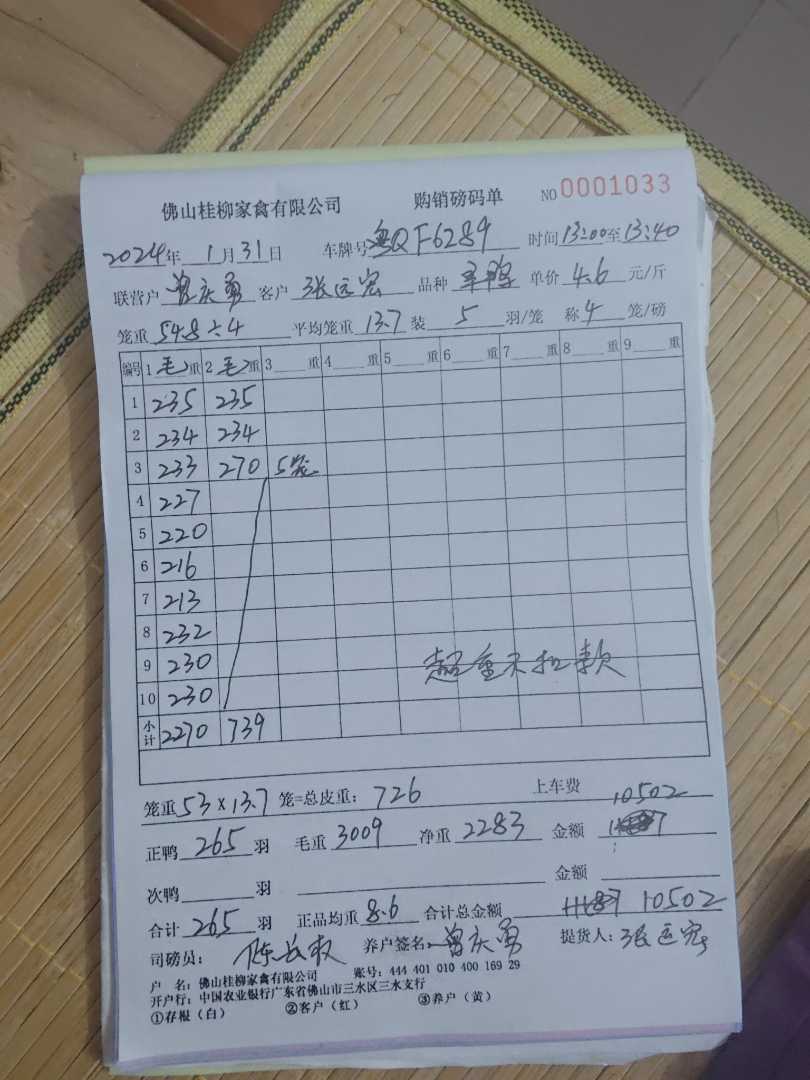 佛山桂柳家禽有限公司 购销磅码单 NO 0001033
2024年 1月31日 车牌号 粤QF6289 时间 13:00至13:40
联营户 曾庆勇 客户 张远宏 品种 单价 4.6 元/斤
笼重 54.8÷4 平均笼重 13.7 装 5 羽/笼 称 4 笼/磅
编号 1 毛重 2 毛重 3 重 4 重 5 重 6 重 7 重 8 重 9 重
1 235 235
2 234 234
3 233 270 5笼
4 227
5 220
6 216
7 213
8 232
9 230 超重不扣款
10 230
小计 2270 739
笼重 53×13.7 笼=总皮重: 726 上车费
10502
正鸭 265 羽 毛重 3009 净重 2283 金额
次鸭 羽 金额
合计 265 羽 正品均重 8.6 合计总金额 10502
司磅员: 养户签名: 曾庆勇 提货人: 张远宏
户 名: 佛山桂柳家禽有限公司 账号: 444 401 010 400 169 29
开户行: 中国农业银行广东省佛山市三水区三水支行
①存根（白） ②客户（红） ③养户（黄）